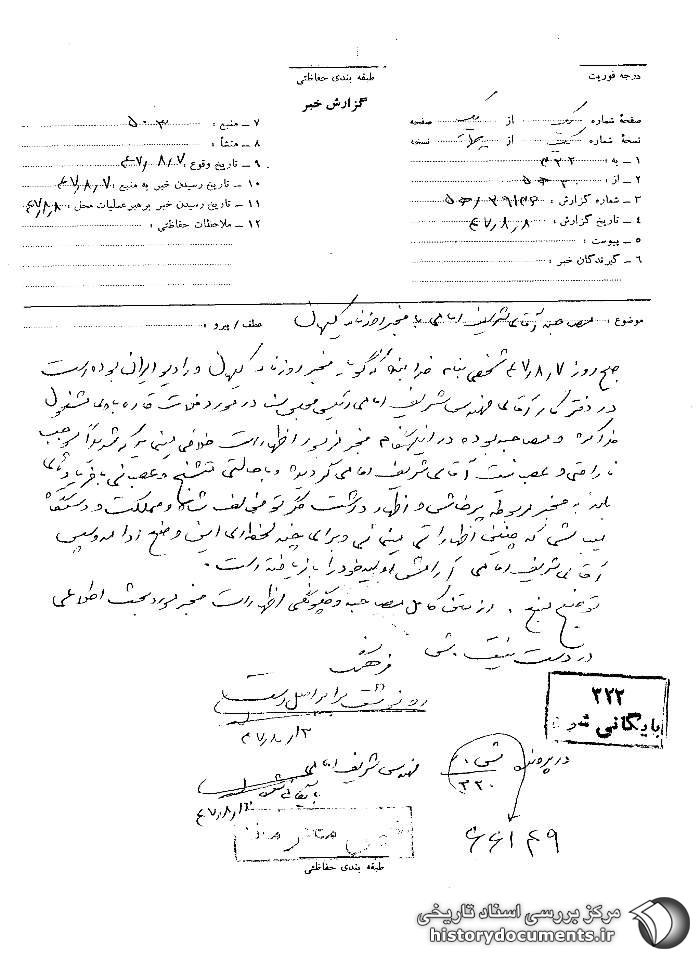 طبقه بندی حفاظتی
درجه فوریت
گزارش خبر
صفحهٔ شماره یک از یک صفحه
نسخهٔ شماره یک از نسخه
۱ - به : ۳۲۲
۲ - از :
۳ - شماره گزارش :
۴ - تاریخ گزارش : ۴۷٫۸٫۸
۵ - پیوست :
۶ - گیرندگان خبر :
۷ - منبع :
۸ - منشأ :
۹ - تاریخ وقوع : ۴۷٫۸٫۷
۱۰ - تاریخ رسیدن خبر به منبع : ۴۷٫۸٫۷
۱۱ - تاریخ رسیدن خبر برهبر عملیات محل : ۴۷٫۸٫۸
۱۲ - ملاحظات حفاظتی :
موضوع : مصاحبه آقای شریف امامی با مخبر روزنامه کیهان عطف / پیرو :
صبح روز ۴۷٫۸٫۷ شخصی بنام که گویا مخبر روزنامه کیهان و رادیو ایران بوده است
در دفتر کار آقای مهندس شریف امامی رئیس مجلس سنا در مورد فلات قاره با وی مشغول
مذاکره و مصاحبه بوده در این هنگام مخبر مزبور اظهارات خلافی مینماید که شدیداً موجب
ناراحتی و عصبانیت آقای شریف امامی گردیده و با حالتی متشنج و عصبانی با فریادهای
بلند به مخبر مربوطه پرخاش و اظهار داشت مگر تو مخالف شاه و مملکت و دستگاه
میباشی که چنین اظهاراتی مینمائی و برای چند لحظه‌ای این وضع ادامه و سپس
آقای شریف امامی آرامش اولیه خود را باز یافته است .
توضیح منبع . از متن کامل مصاحبه و چگونگی اظهارات مخبر مورد بحث اطلاعی
در دست نیست .
فرهنگ
رونوشت برابر اصل است
۳۲۲
بایگانی شود
در پرونده
مهندس شریف امامی
۳۲۰
۶۶۱۴۹
طبقه بندی حفاظتی
مرکز بررسی اسناد تاریخی
historydocuments.ir